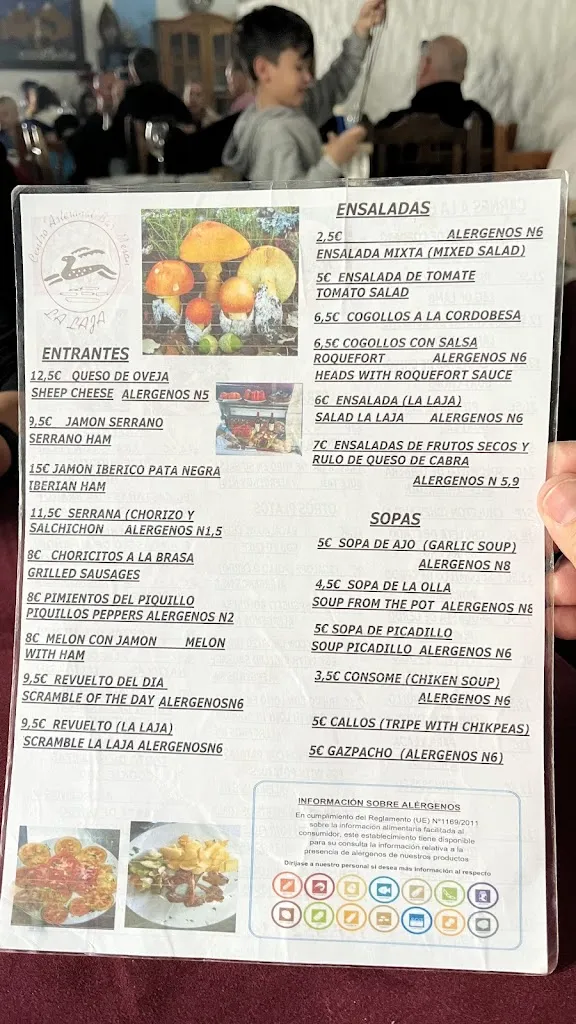 LA LAJA
ENTRANTES
12,5€ QUESO DE OVEJA
SHEEP CHEESE ALERGENOS N5
9,5€ JAMON SERRANO
SERRANO HAM
15€ JAMON IBERICO PATA NEGRA
IBERIAN HAM
11,5€ SERRANA (CHORIZO Y
SALCHICHON ALERGENOS N1,5
8€ CHORICITOS A LA BRASA
GRILLED SAUSAGES
8€ PIMIENTOS DEL PIQUILLO
PIQUILLOS PEPPERS ALERGENOS N2
8€ MELON CON JAMON MELON
WITH HAM
9,5€ REVUELTO DEL DIA
SCRAMBLE OF THE DAY ALERGENOSN6
9,5€ REVUELTO (LA LAJA)
SCRAMBLE LA LAJA ALERGENOSN6
ENSALADAS
2,5€ ALERGENOS N6
ENSALADA MIXTA (MIXED SALAD)
5€ ENSALADA DE TOMATE
TOMATO SALAD
6,5€ COGOLLOS A LA CORDOBESA
6,5€ COGOLLOS CON SALSA
ROQUEFORT ALERGENOS N6
HEADS WITH ROQUEFORT SAUCE
6€ ENSALADA (LA LAJA)
SALAD LA LAJA ALERGENOS N6
7€ ENSALADAS DE FRUTOS SECOS Y
RULO DE QUESO DE CABRA
ALERGENOS N 5,9
SOPAS
5€ SOPA DE AJO (GARLIC SOUP)
ALERGENOS N8
4,5€ SOPA DE LA OLLA
SOUP FROM THE POT ALERGENOS N8
5€ SOPA DE PICADILLO
SOUP PICADILLO ALERGENOS N6
3,5€ CONSOME (CHIKEN SOUP)
ALERGENOS N6
5€ CALLOS (TRIPE WITH CHIKPEAS)
5€ GAZPACHO (ALERGENOS N6)
INFORMACIÓN SOBRE ALÉRGENOS
En cumplimiento del Reglamento (UE) Nº1169/2011
sobre la información alimentaria facilitada al
consumidor, este establecimiento tiene disponible
para su consulta la información relativa a la
presencia de alérgenos de nuestros productos
Diríjase a nuestro personal si desea más información al respecto